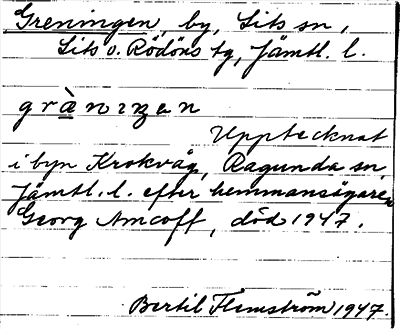 Greningen, by, Lits sn,
Lits o. Rödöns tg, Jämtl. l.
grànıŋen
Upptecknat
i byn Krokvåg, Ragunda sn,
Jämtl. l. efter hemmansägaren
Georg Amcoff, död 1947.
Bertil Flemström 1947.